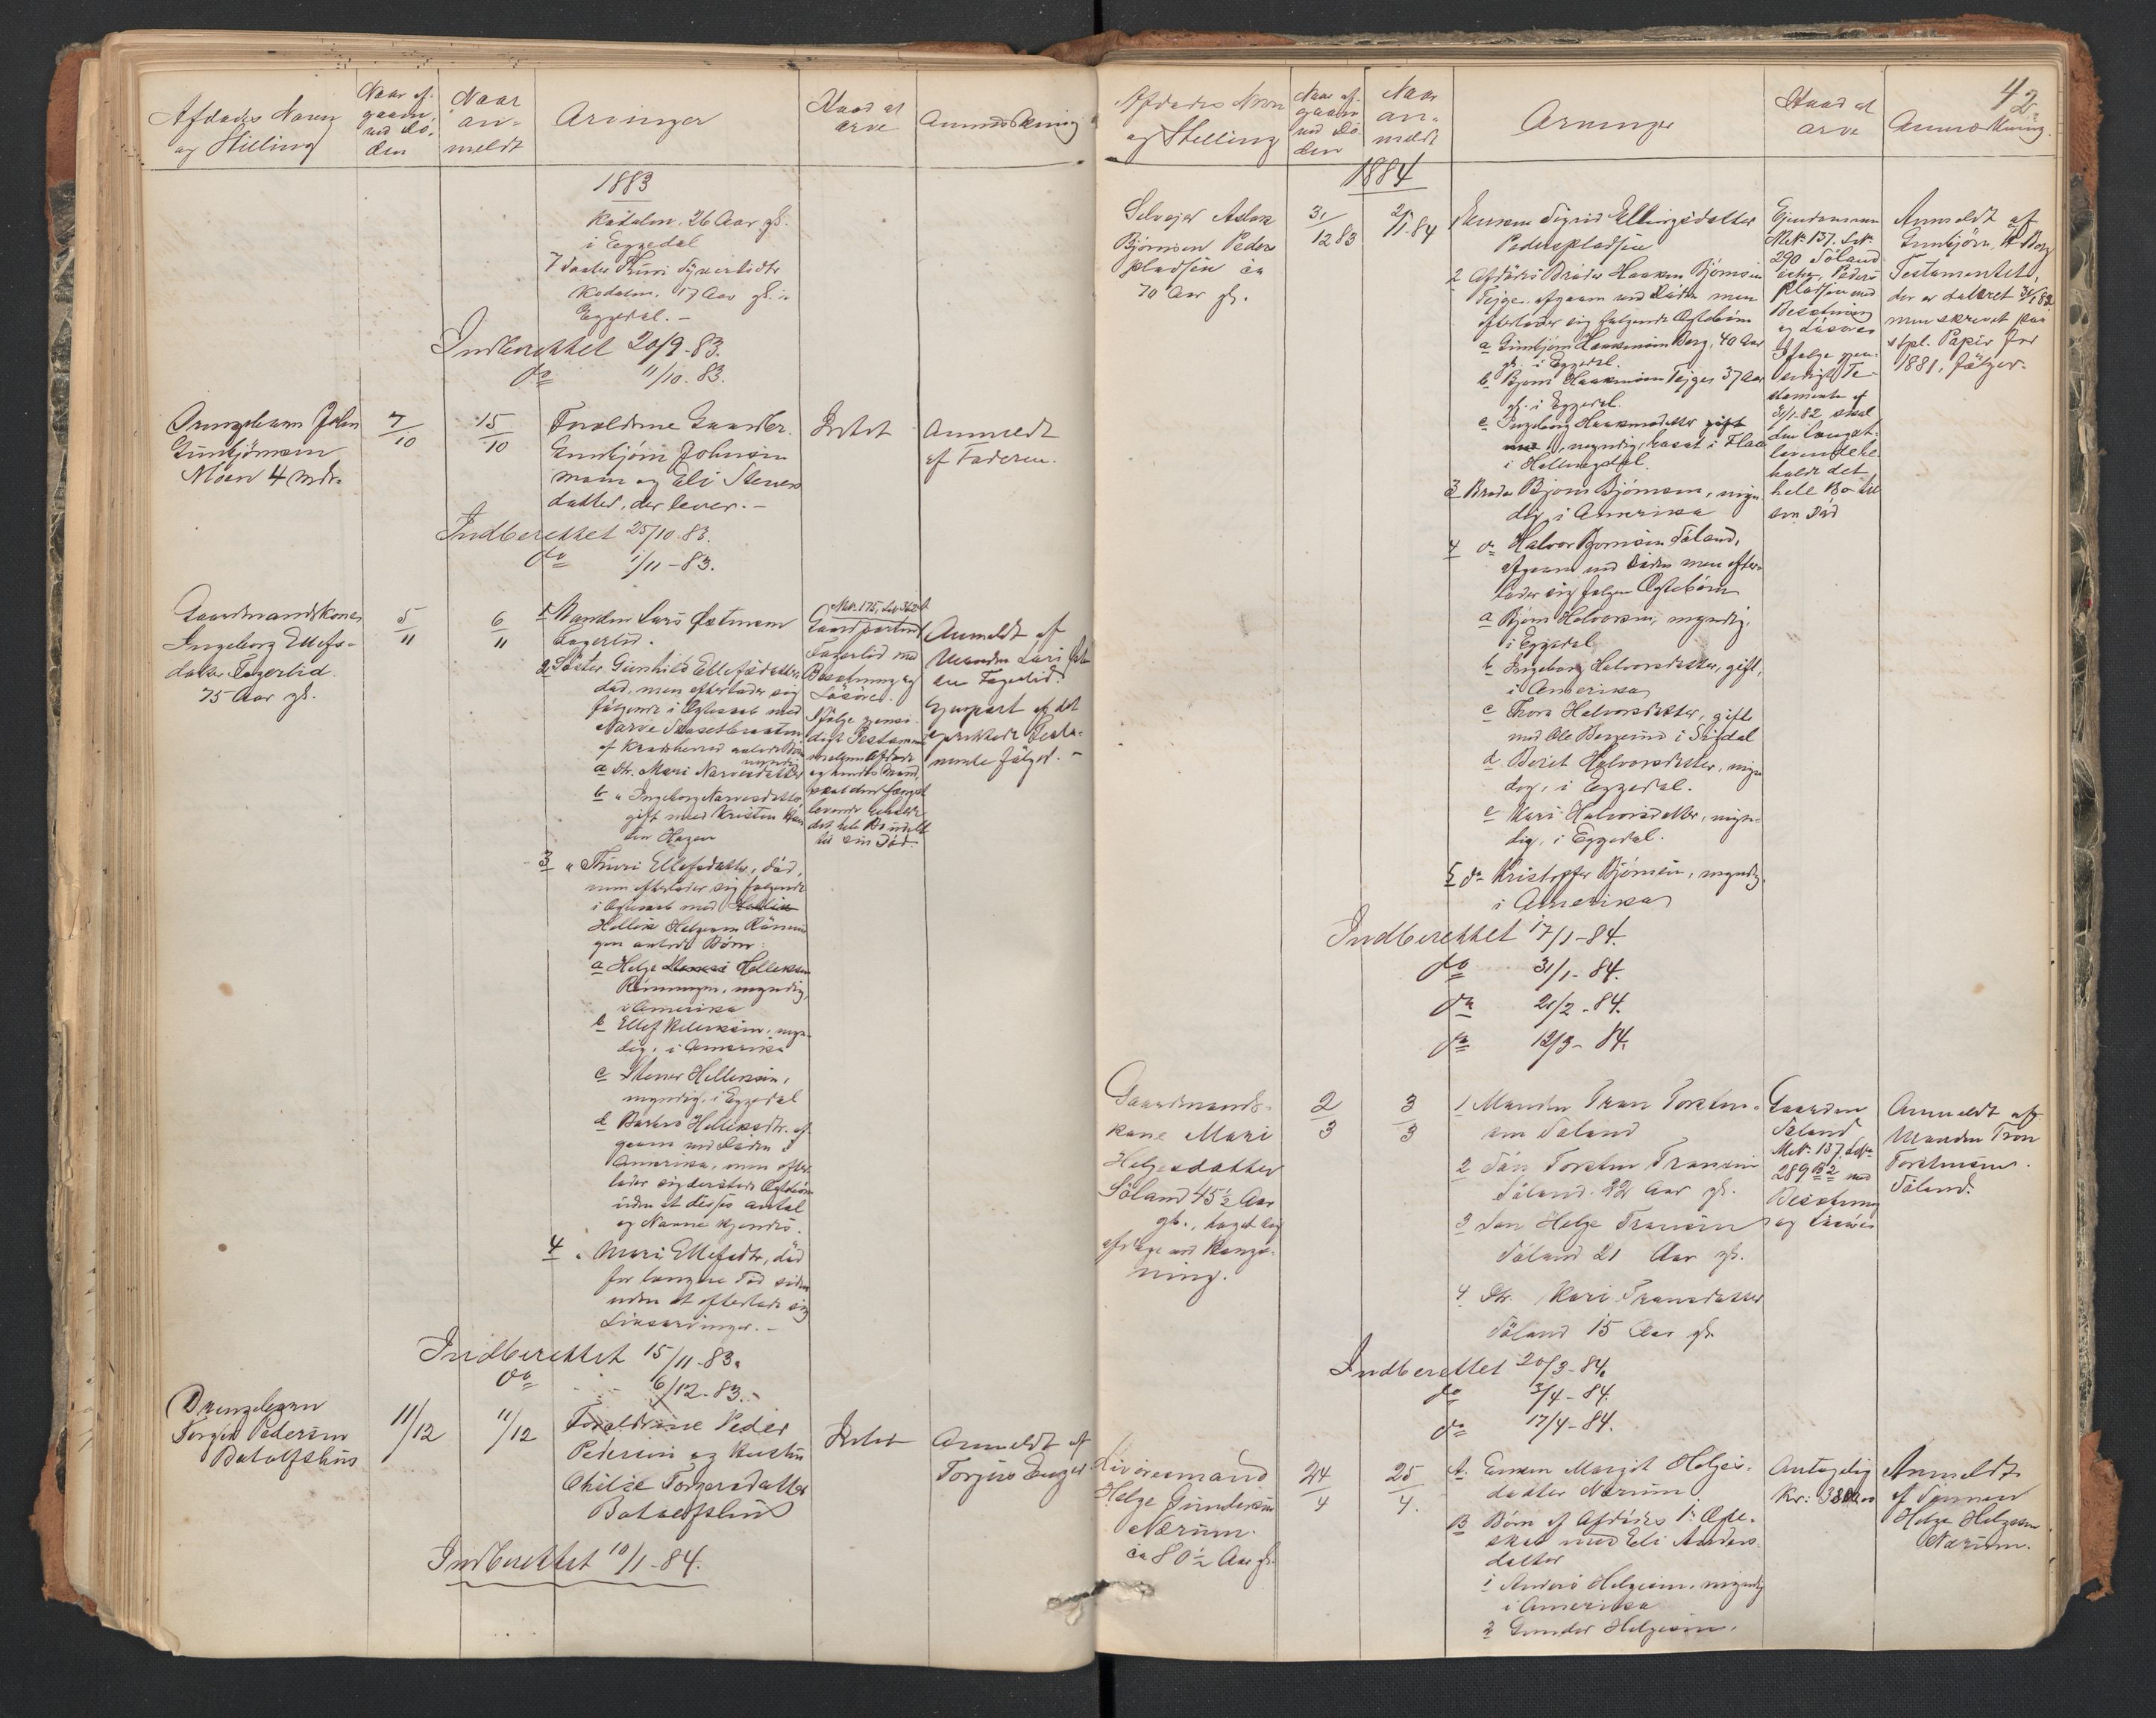 Afdødes Navn
og Stilling
Naar af-
gaaet
ved Dø-
den
Naar
an-
meldt
Arvinger
Hvad at
arve
Anmærkning
1883
26 Aar gl.
i Eggedal
7 Datter Thuri
17 Aar gl. i
Eggedal. -
Indberettet 20/9-83.
do 11/10-83.
Drengebarn John
Gunbjørnsen
Moen 4 Mdr.
7/10
15/10
Forældrene Gaardbr.
Gunbjørn Johnsen
Moen og Eli Steners
datter, der lever. -
Intet
Anmeldt
af Faderen.
Indberettet 25/10-83.
do 1/11-83.
Gaardmandskone
Ingeborg Ellefs-
datter Fagerlid
75 Aar gl.
5/11
6/11
1 Manden Lars
Fagerlid.
2 Søster Gunhild Ellefsdatter
død, men efterlader sig
følgende i Ægteskab med
Narve
af Krødsherred
a Dtr. Mari Narvesdatter
b " Ingeborg Narvesdatter,
gift med Kristen
Hagen
3 " Thuri Ellefsdatter, død,
men efterlader sig følgende
i Ægteskab med
Hellik Helgesen Rønnin
gen avlede Børn:
a Helge Helleksen
Rønningen, myndig,
i Amerika
b Ellef Helleksen, myn-
dig, i Amerika
c Stener Helleksen,
myndig, i Eggedal
d Barbro Helleksdtr. af-
gaaet ved Døden i
Amerika, men efter-
lader sig dersteds Ægtebørn
uden at disses antal
og Navne kjendes.
4 " Mari Ellefsdtr., død
for længere Tid siden
uden at efterlade sig
Livsarvinger. -
Mtr. 175, Lb. 362
Gaardparten
Fagerlid med
Besætning og
Løsøre.
Ifølge gjensi-
digt Testament
mellem Afdøde
og hendes Mand,
skal den længst
levende beholde
det hele Bo udelt
til sin Død.
Anmeldt af
Manden Lars
Fagerlid.
Gjenpart af det
oprettede Testa-
mente følger. -
Indberettet 15/11-83.
do 6/12-83. -
Drengebarn
Torgier Pedersen
Botolfshus
11/12
11/12
Forældrene Peder
Pedersen og Hustru
Chilie Torgersdatter
Botolfshus
Intet
Anmeldt af
Torgier Enger
Indberettet 10/1-84.
42
Afdødes Navn
og Stilling
Naar af-
gaaet
ved Dø-
den
Naar
an-
meldt
Arvinger
Hvad at
arve
Anmærkning.
1884
Selvejer Aslak
Bjørnsen Peders
pladsen ca
70 Aar gl.
31/12 83
2/1-84
1 Enken Sigrid Ellingsdatter
Paderspladsen
2 Afdødes Broder Haaken Bjørnsen
Tejge, afgaaet ved Døden men
efterlader sig følgende Ægtebørn
a Gunbjørn Haakensen Berg, 40 Aar
gl. i Eggedal.
b Bjørn Haakensen Tejge 37 Aar
gl. i Eggedal.
c Ingeborg Haakensdatter gift
med, myndig, bosat i Flaa
i Hallingdal.
3 Broder Bjørn Bjørnsen, myn-
dig, i Amerika
4 do Halvor Bjørnsen Søland,
afgaaet ved Døden men efter-
lader sig følgen Ægtebørn
a Bjørn Halvorsen, myndig,
i Eggedal
b Ingeborg Halvorsdatter, gift,
i Amerika
c Thora Halvorsdatter, gift
med Ole i Sigdal
d Beret Halvorsdatter, myn
dig, i Eggedal.
e Mari Halvorsdatter, myn-
dig, i Eggedal.
5 do Kristoffer Bjørnsen, myndig,
i Amerika
Ejendommen
Mtr. 137. Lb.
290 Søland
Peders
pladsen med
Besætning
og Løsøre
Ifølge gjen-
sidigt Te-
stamente af
31/1-82, skal
den længst-
levende be-
holde det
hele Bo til
sin Død
Anmeldt af
Gunbjørn H. Berg
Testamentet,
der er dateret 31/1 82
men skrevet paa
stpl. Papir for
1881, følger.
Indberettet 17/1-84.
do 31/1-84.
do 21/2-84.
do 12/3-84.
Gaardmands-
kone Mari
Helgesdatter
Søland 45½ Aar
gl., taget sig
afdage ved Hæng-
ning.
2/3
3/3
1 Manden Tron Torsten-
sen Søland
2 Søn Torsten Tronsen
Søland. 22 Aar gl.
3 Søn Helge Tronsen
Søland 21 Aar gl.
4 Dtr. Kari Tronsdatter
Søland 15 Aar gl.
Gaarden
Søland
Mtr. 137. Lb.
289 B 2 med
Besætning
og Løsøre
Anmeldt af
Manden Tron
Torstensen
Søland.
Indberettet 20/3-84.
do 3/4-84.
do 17/4-84.
Livøresmand
Helge Gundersen
Nærum.
ca 80½ Aar gl.
24/4
25/4.
A. Enken Margit Helges-
datter Nærum
B Børn af Afdødes 1. Ægte-
skab med Eli Anders-
datter
1 Anders Helgesen, myndig
i Amerika
2 Gunder Helgesen,
Antagelig
Anmeldt
af Sønnen
Helge Helgesen
Nærum.